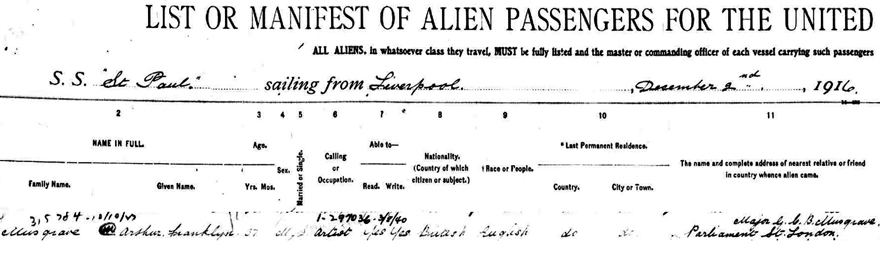 LIST OR MANIFEST OF ALIEN PASSENGERS FOR THE UNITED
ALL ALIENS, in whatsoever class they travel, MUST be fully listed and the master or commanding officer of each vessel carrying such passengers
S. S. "St Paul." sailing from Liverpool. , December 2nd , 1916.
2 3 4 5 6 7 8 9 10 11
NAME IN FULL. Age. Sex. Married or Single. Calling or Occupation. Able to— Nationality. (Country of which citizen or subject.) †Race or People. *Last Permanent Residence. The name and complete address of nearest relative or friend in country whence alien came.
Family Name. Given Name. Yrs. Mos. Read. Write. Country. City or Town.
Major C. B. Musgrave,
Musgrave Arthur Franklyn S Artist Yes Yes British English do do Parliament St. London.